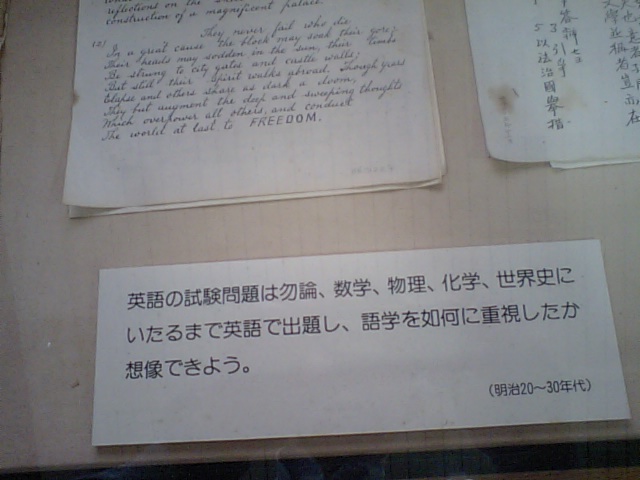 reflections on the
construction of a magnificent palace.
12) They never fail who die
In a great cause the block may soak their gore;
Their heads may sodden in the sun, their limbs
Be strung to city gates and castle walls;
But still their Spirit walks abroad. Though years
Elapse and others share as dark a doom,
They but augment the deep and sweeping thoughts
Which overpower all others, and conduct
The world at last to FREEDOM.
3 引
5 以法治國
英語の試験問題は勿論、数学、物理、化学、世界史に
いたるまで英語で出題し、語学を如何に重視したか
想像できよう。
(明治20〜30年代)